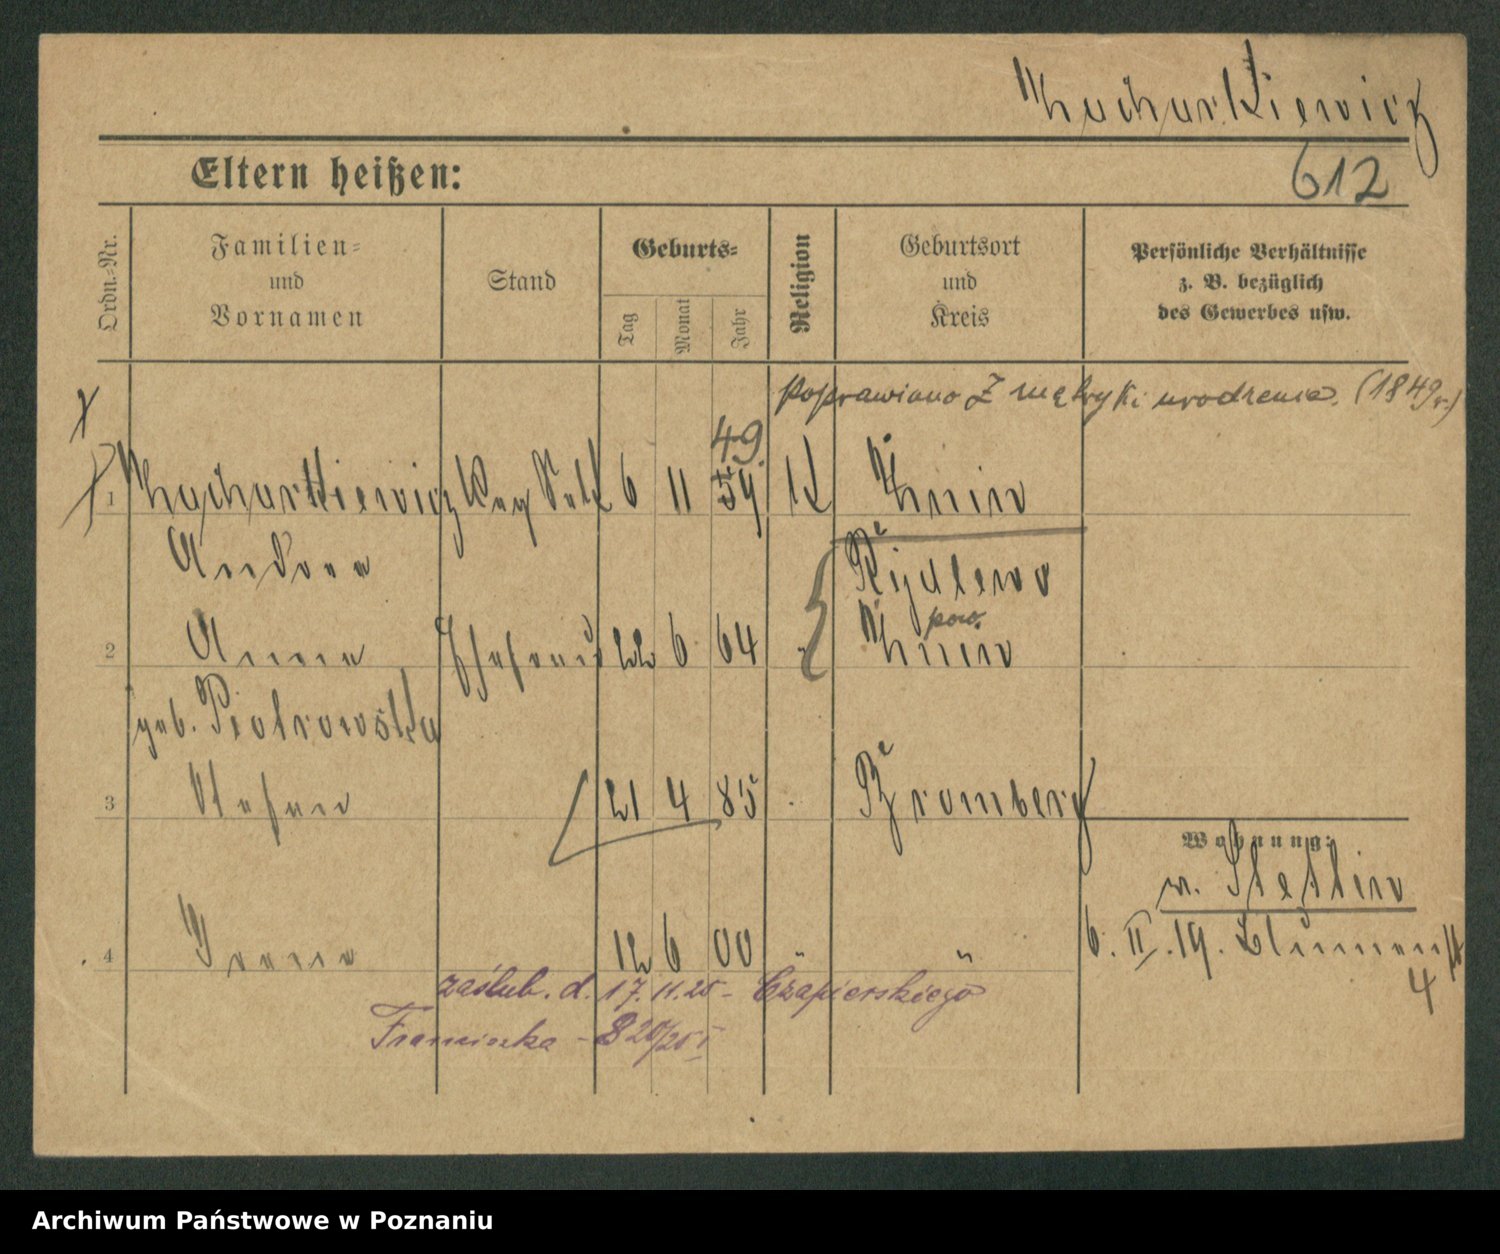 Zacharkiewicz
Eltern heißen:
612
Ordn.-Nr.
Familien-
und
Vornamen
Stand
Geburts-
Tag
Monat
Jahr
Religion
Geburtsort
und
Kreis
Persönliche Verhältnisse
z. B. bezüglich
des Gewerbes usw.
Poprawiono z metryki urodzenia. (1849 r.)
49.
1 Zacharkiewicz 6 11 54 k Żnin
Andreas
Rydlewo
pow.
2 Anna Ehefrau 22 6 64 " Żnin
geb. Piotrowska
3 Stefan 21 4 85 " Bromberg
Wohnung:
v. Stettin
4 Irena 12 6 00 " "
6. II. 19. Blumenstr
4
zaślub. d. 17.11.25 - Czapierskiego
Franciszka - 820/25 I
Archiwum Państwowe w Poznaniu